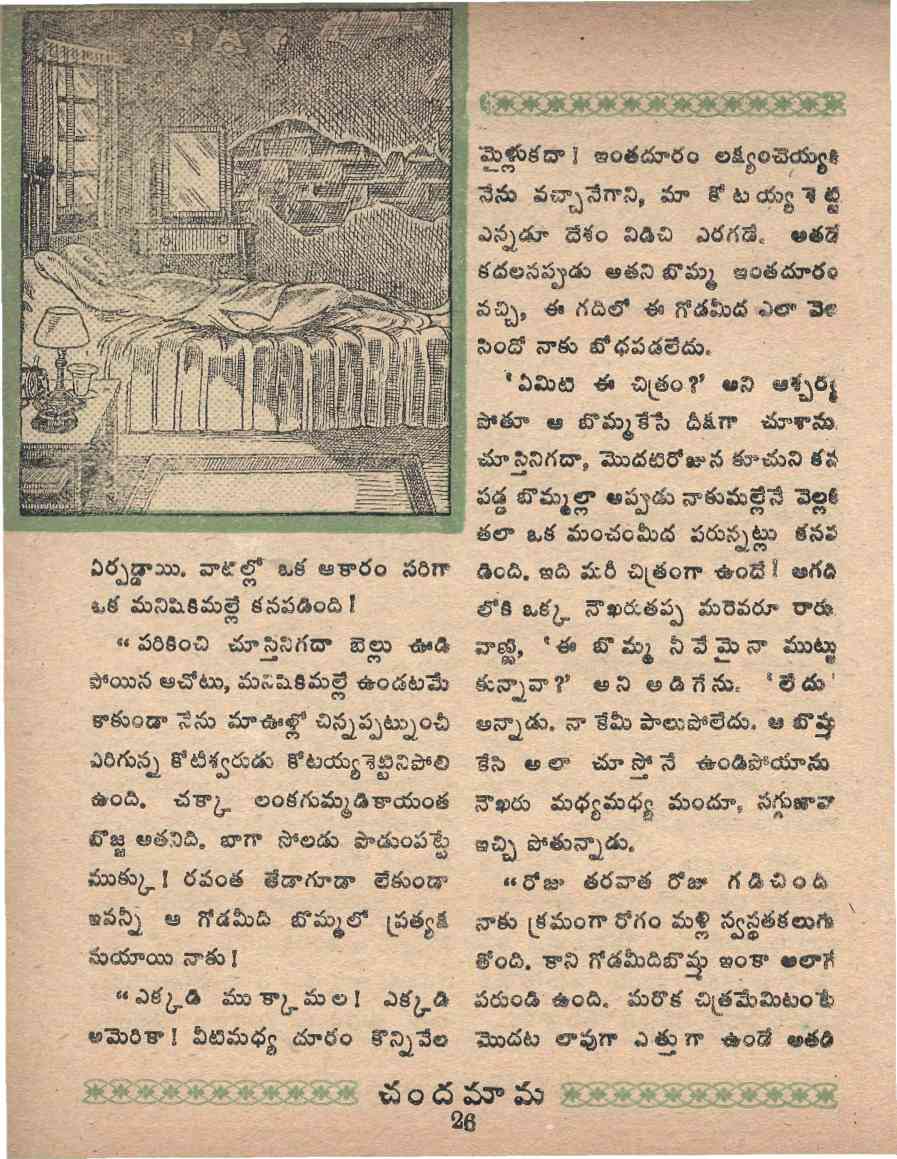 ఏర్పడ్డాయి. వాటిల్లో ఒక ఆకారం సరిగా
ఒక మనిషికిమల్లే కనపడింది!
“పరికించి చూస్తినిగదా బెల్లు ఊడి
పోయిన ఆచోటు, మనిషికిమల్లే ఉండటమే
కాకుండా నేను మాఊళ్లో చిన్నప్పట్నుంచీ
ఎరిగున్న కోటీశ్వరుడు కోటయ్యశెట్టినిపోలి
ఉంది. చక్కా లంకగుమ్మడికాయంత
బొజ్జ అతనిది. బాగా సోలడు పొడుంపట్టే
ముక్కు! రవంత తేడాగూడా లేకుండా
ఇవన్నీ ఆ గోడమీది బొమ్మలో ప్రత్యక్ష
మయాయి నాకు!
“ఎక్కడి ముక్కామల! ఎక్కడి
అమెరికా! వీటిమధ్య దూరం కొన్నివేల
మైళ్లుకదా! ఇంతదూరం లక్ష్యంచెయ్యక
నేను వచ్చానేగాని, మా కోటయ్యశెట్టి
ఎన్నడూ దేశం విడిచి ఎరగడే. అతడే
కదలనప్పుడు అతని బొమ్మ ఇంతదూరం
వచ్చి, ఈ గదిలో ఈ గోడమీద ఎలా వెల
సిందో నాకు బోధపడలేదు.
‘ఏమిటి ఈ చిత్రం?’ అని ఆశ్చర్య
పోతూ ఆ బొమ్మకేసి దీక్షగా చూశాను.
చూస్తినిగదా, మొదటిరోజున కూచుని కన
పడ్డ బొమ్మల్లా అప్పుడు నాకుమల్లేనే వెల్లకి
తలా ఒక మంచంమీద పరున్నట్లు కనప
డింది. ఇది మరీ చిత్రంగా ఉందే! ఆగది
లోకి ఒక్క నౌఖరుతప్ప మరెవరూ రారు.
వాణ్ణి, ‘ఈ బొమ్మ నీవేమైనా ముట్టు
కున్నావా?’ అని అడిగేను. ‘లేదు’
అన్నాడు. నా కేమీ పాలుపోలేదు. ఆ బొమ్మ
కేసి అలా చూస్తోనే ఉండిపోయాను
నౌఖరు మధ్యమధ్య మందూ, సగ్గుజావా
ఇచ్చి పోతున్నాడు.
“రోజు తరవాత రోజు గడిచింది
నాకు క్రమంగా రోగం మళ్లి స్వస్థతకలుగు
తోంది. కాని గోడమీదిబొమ్మ ఇంకా అలాగే
పరుండి ఉంది. మరొక చిత్రమేమిటంటే
మొదట లావుగా ఎత్తుగా ఉండే అతడి
చందమామ
26